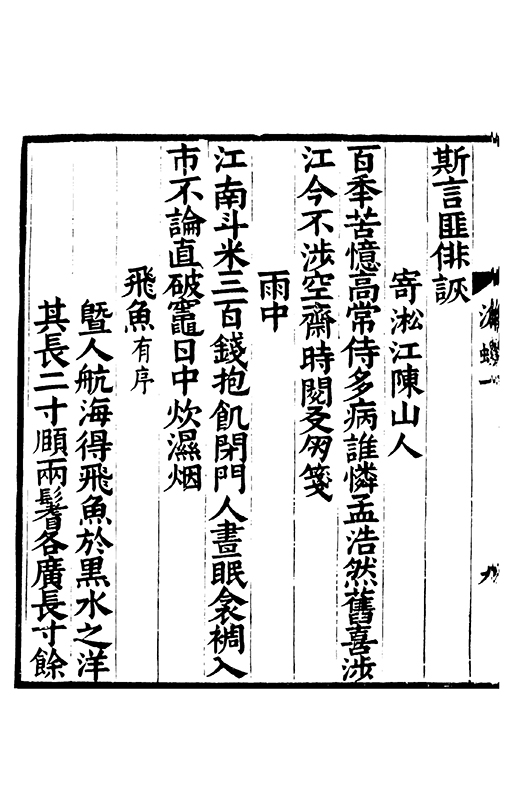 斯言匪俳詼
寄淞江陳山人
百秊苦憶高常侍多病誰憐孟浩然舊喜涉
江今不涉空齋時閱
雨中
江南斗米三百錢抱飢閉門人晝眠衾裯入
市不論直破竈日中炊濕烟
飛魚有序
暨人航海得飛魚於黑水之洋
其長二寸頤兩鬐各廣長寸餘
九